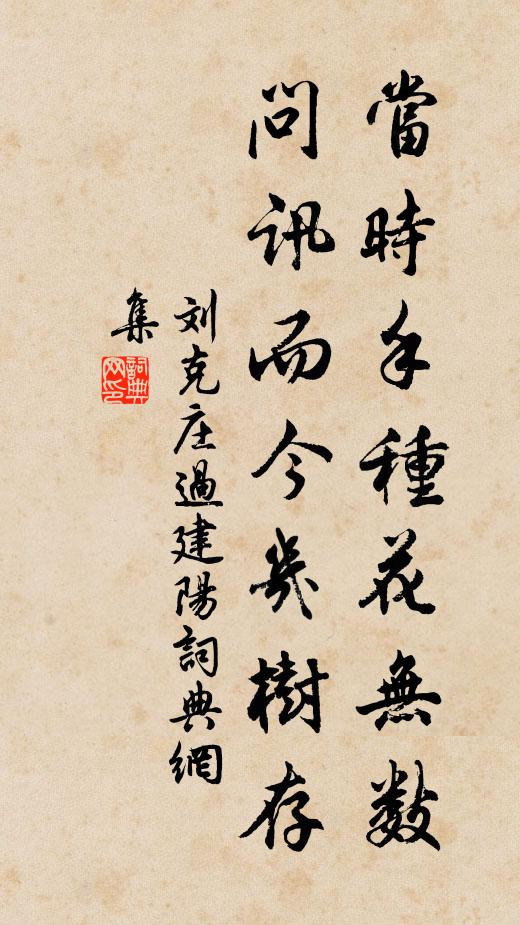 當時手種花無數
問訊而今幾樹存
刘克庄過建陽詞典網
集
詞典
网印